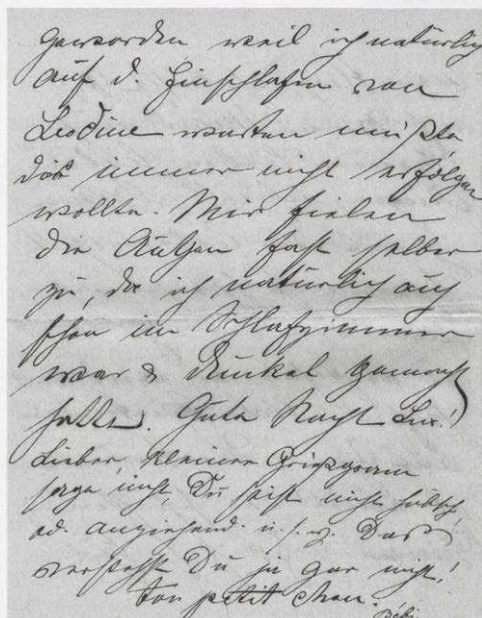 geworden weil ich natürlich
auf d. Einschlafen von
Leodine warten mußte
das immer nicht erfolgen
wollte. Mir fielen
die Augen fast selber
zu, da ich natürlich auch
schon im Schlafzimmer
war & dunkel gemacht
hatte). Gute Nacht Lux!
Lieber, kleiner Griesgram
sage nicht, Du seist nicht hübsch,
od. anziehend u. s. w. Das
verstehst Du ja gar nicht!
Ton petit chou.